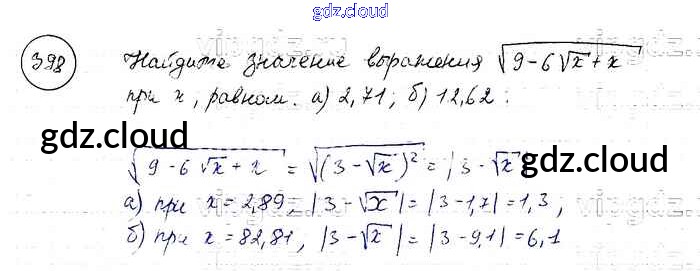 gdz.cloud
398
Найдите значение выражения √9-6√x+x
при x, равном. а) 2,71; б) 12,62:
gdz.cloud
√9-6√x+x = √(3-√x)² = |3-√x|
gdz.cloud
а) при x=2,89, |3-√x|=|3-1,7|=1,3;
б) при x=82,81, |3-√x|=|3-9,1|=6,1